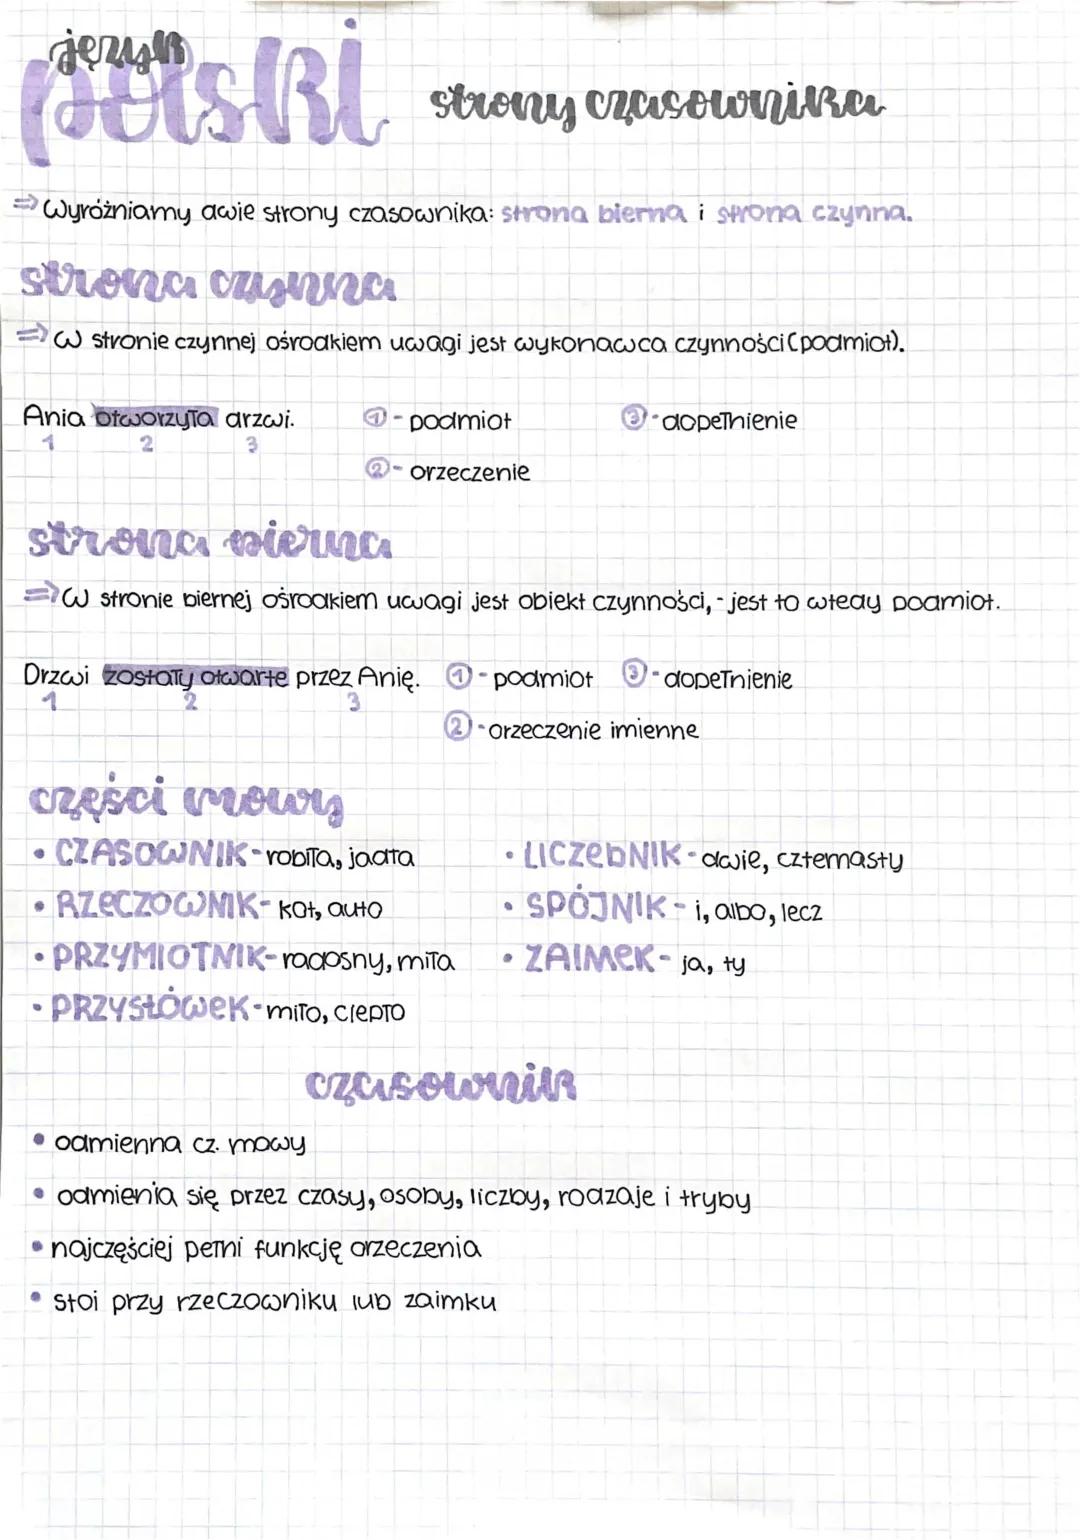 język
polski
strony czasownika
=> Wyróżniamy dwie strony czasownika: strona bierna i strona czynna.
strona czynna
=> W stronie czynnej ośrodkiem uwagi jest wykonawca czynności (podmiot).
Ania otworzyła drzwi. ① - podmiot ③ - dopełnienie
1 2 3
② - orzeczenie
strona bierna
=> W stronie biernej ośrodkiem uwagi jest obiekt czynności, - jest to wtedy podmiot.
Drzwi zostały otwarte przez Anię. ① - podmiot ③ - dopełnienie
1 2 3
② - orzeczenie imienne
części mowy
• CZASOWNIK - robiła, jadła
• RZECZOWNIK - kot, auto
• PRZYMIOTNIK - radosny, miła
• PRZYSŁÓWEK - miło, ciepło
• LICZEBNIK - dwie, czternasty
• SPÓJNIK - i, albo, lecz
• ZAIMEK - ja, ty
czasownik
• odmienna cz. mowy
• odmienia się przez czasy, osoby, liczby, rodzaje i tryby
• najczęściej pełni funkcję orzeczenia
• stoi przy rzeczowniku lub zaimku